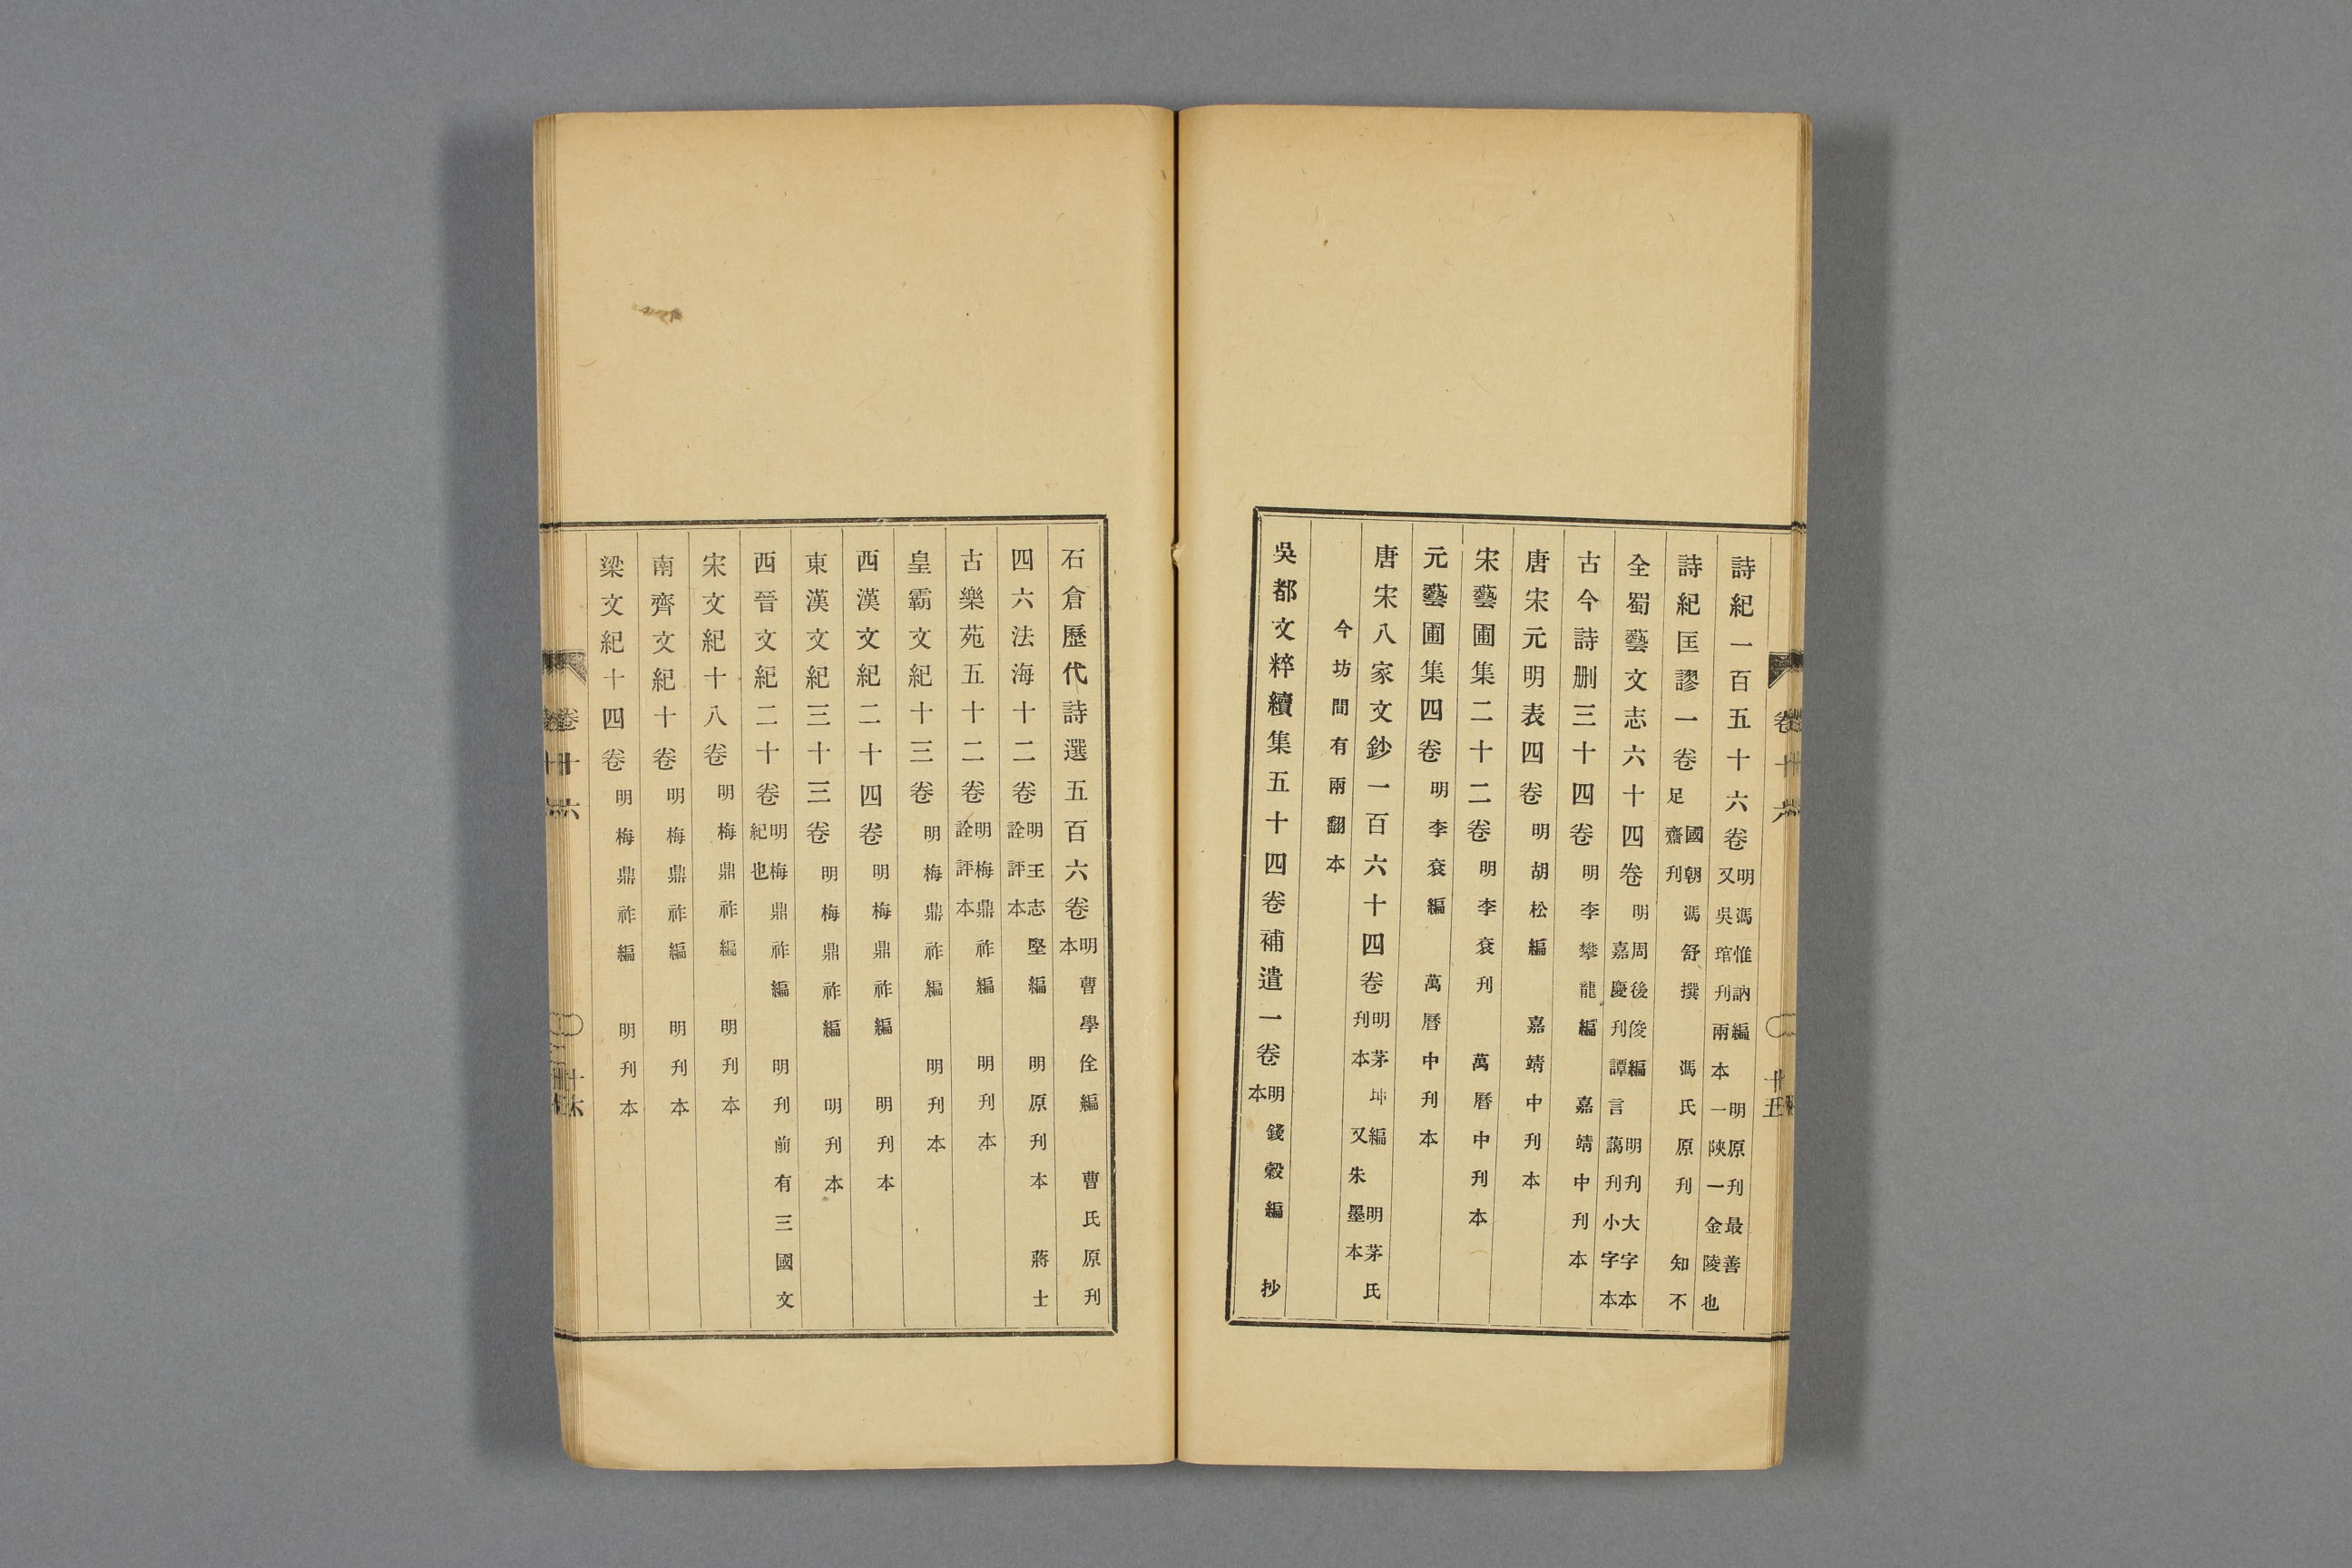 卷十六 十五
詩紀一百五十六卷 明馮惟訥編 明原刊最善
又吳琯刊兩本一陝一金陵也
詩紀匡謬一卷 國朝馮舒撰 馮氏原刊 知不
足齋刊
全蜀藝文志六十四卷 明周後俊編 明刊大字本
嘉慶刊譚言藹刊小字本
古今詩刪三十四卷 明李攀龍編 嘉靖中刊本
唐宋元明表四卷 明胡松編 嘉靖中刊本
宋藝圃集二十二卷 明李袞刊 萬曆中刊本
元藝圃集四卷 明李袞編 萬曆中刊本
唐宋八家文鈔一百六十四卷 明茅坤編 明茅氏
刊本 又朱墨本
今坊間有兩翻本
吳都文粹續集五十四卷補遣一卷 明錢穀編 抄
本
石倉歷代詩選五百六卷 明曹學佺編 曹氏原刊
本
四六法海十二卷 明王志堅編 明原刊本 蔣士
詮評本
古樂苑五十二卷 明梅鼎祚編 明刊本
詮評本
皇霸文紀十三卷 明梅鼎祚編 明刊本
西漢文紀二十四卷 明梅鼎祚編 明刊本
東漢文紀三十三卷 明梅鼎祚編 明刊本
西晉文紀二十卷 明梅鼎祚編 明刊前有三國文
紀也
宋文紀十八卷 明梅鼎祚編 明刊本
南齊文紀十卷 明梅鼎祚編 明刊本
梁文紀十四卷 明梅鼎祚編 明刊本
卷十六